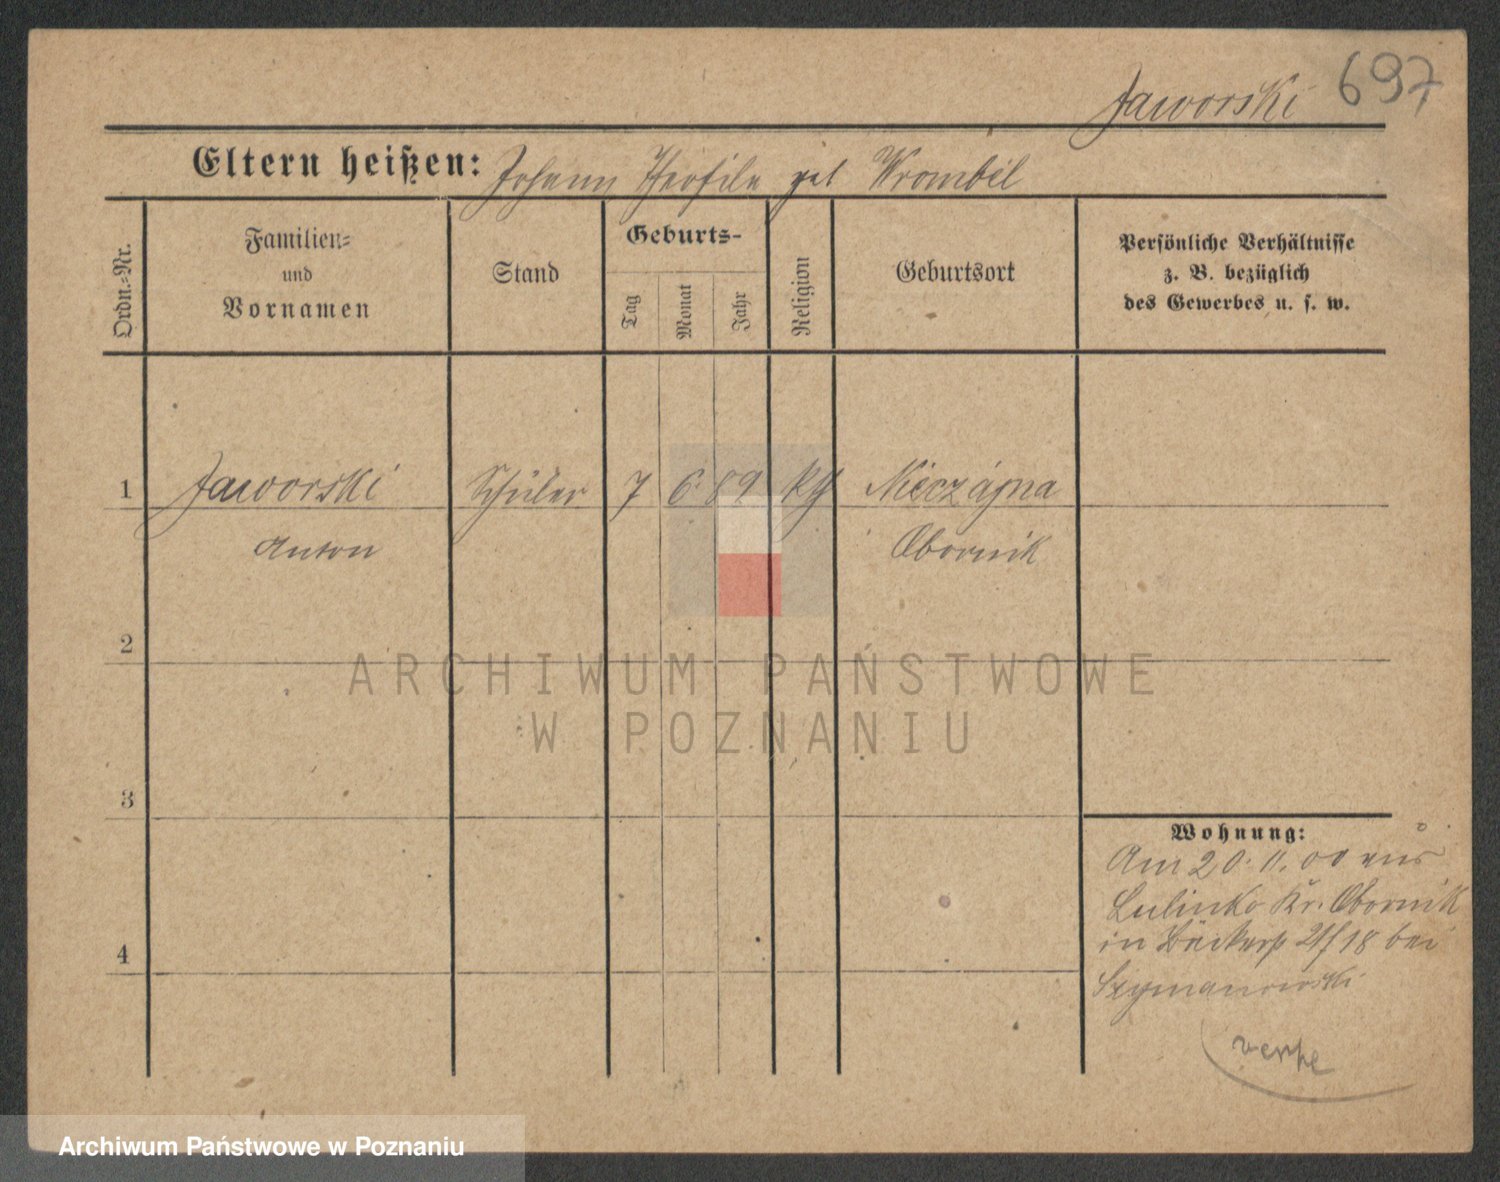 697
Jaworski
Eltern heißen: Johann Theofila geb Wrombel
Ordn.-Nr.
Familien-
und
Vornamen
Stand
Geburts-
Tag
Monat
Jahr
Religion
Geburtsort
Persönliche Verhältnisse
z. B. bezüglich
des Gewerbes u. s. w.
1 Jaworski Schüler 7 6. 89 kth Nieczajna
Anton Obornik
2
3
4
Wohnung:
Am 20. 11. 00 aus
Lulinko Kr. Obornik
in Bäckerstr 21/18 bei
Szymanowski
ARCHIWUM PAŃSTWOWE
W POZNANIU
Archiwum Państwowe w Poznaniu